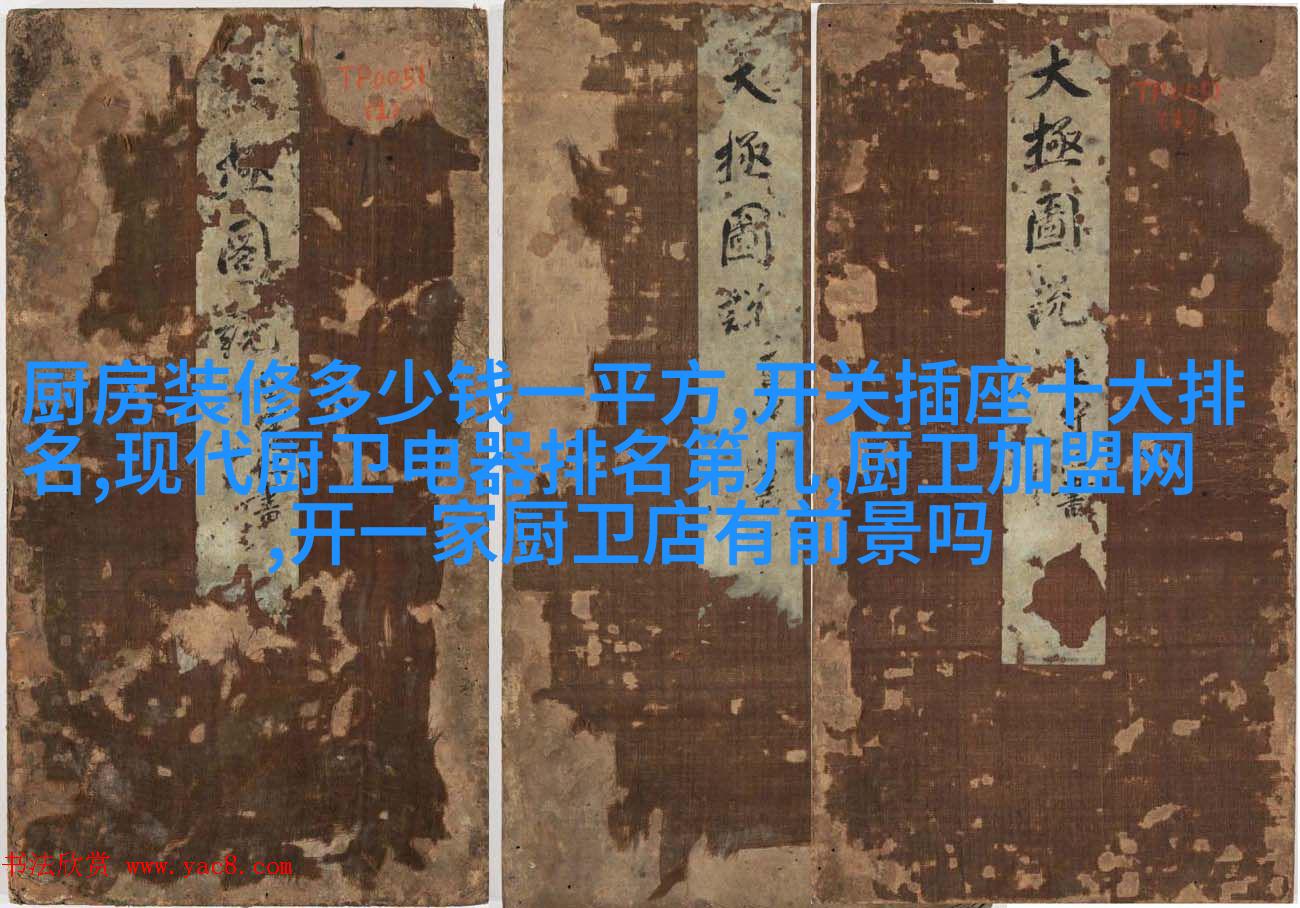 TP0051
(1)
極圖說
大極圖說
大極圖說
書
厨房装修多少钱一平方,开关插座十大排
名,现代厨卫电器排名第几,厨卫加盟网
,开一家厨卫店有前景吗
书法欣赏 www.yac8.com